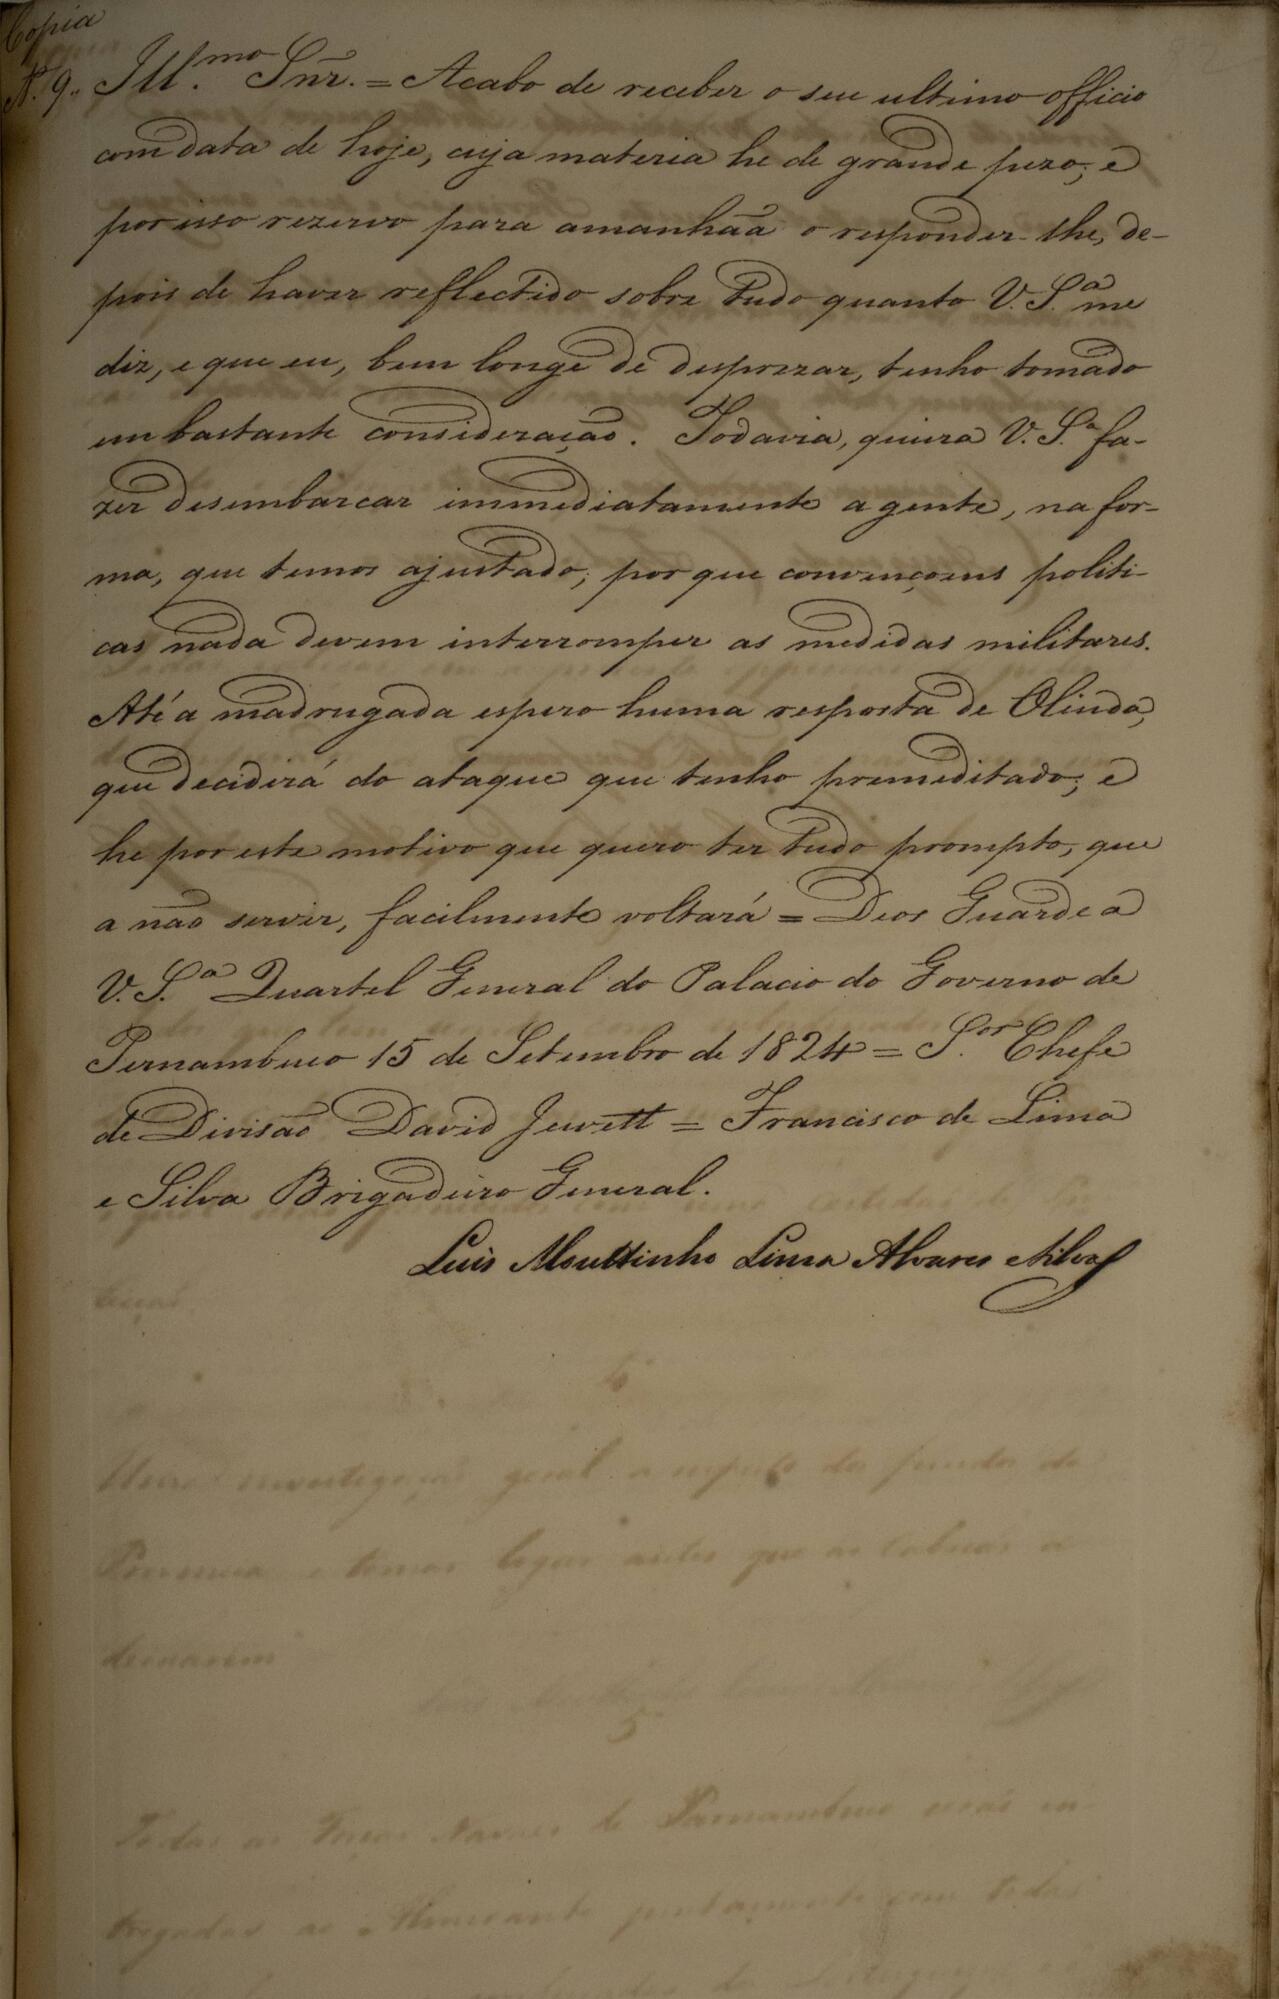 Copia
N. 9. Ill.mo Snr. = Acabo de receber o seu ultimo officio
com data de hoje, cuja materia he de grande pezo; e
por isso rezervo para amanhãa o responder-lhe, de-
pois de haver reflectido sobre tudo quanto V. S.a me
diz, e que eu, bem longe de desprezar, tenho tomado
em bastante consideração. Todavia, queira V. S.a fa-
zer desembarcar immediatamente a gente, na for-
ma, que temos ajustado; por que convençoens politi-
cas nada devem interromper as medidas militares.
Até a madrugada espero huma resposta de Olinda,
que decidirá do ataque que tenho premeditado; e
he por este motivo que quero ter tudo prompto, que
a não servir, facilmente voltará = Deos Guarde a
V. S.a Quartel General do Palacio do Governo de
Pernambuco 15 de Setembro de 1824 = S.or Chefe
de Divisão David Jewett = Francisco de Lima
e Silva Brigadeiro General.
Luis Mouttinho Lima Alvares e Silva